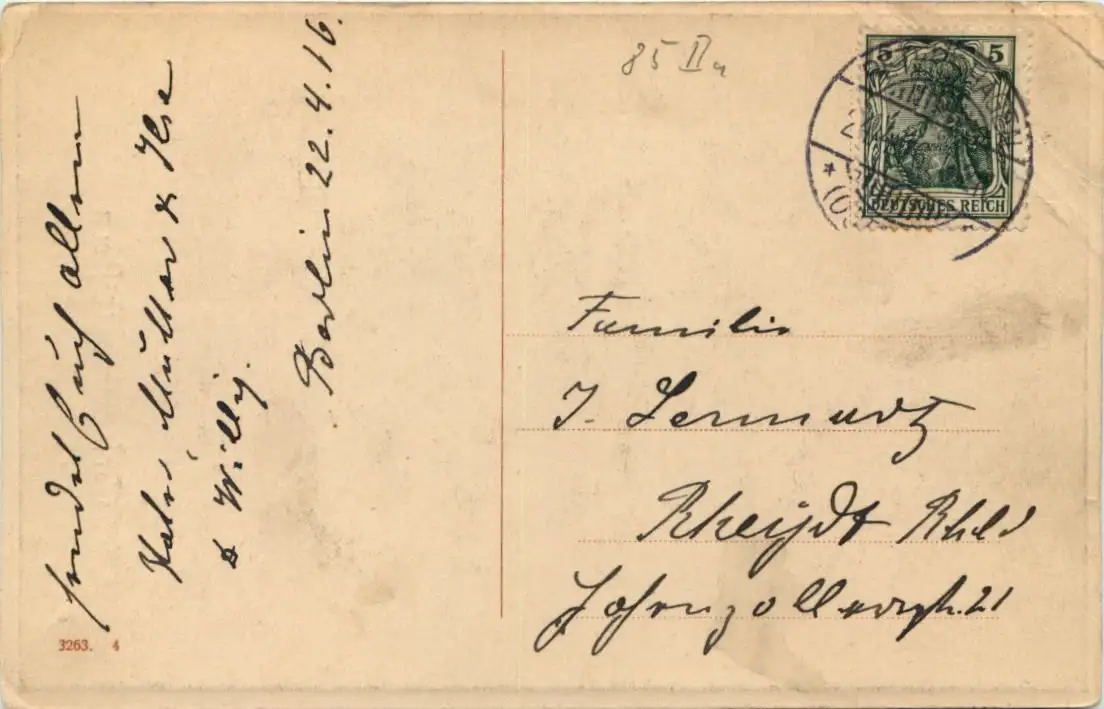 sendet Euch allen
Vater Mutter & Ilse
& Willy.
Berlin 22.4.16.
85 II a
5 5
DEUTSCHES REICH
Familie
J. Lermudtz
Rheydt Rhld
Hohenzollernstr. 21
3263. 4